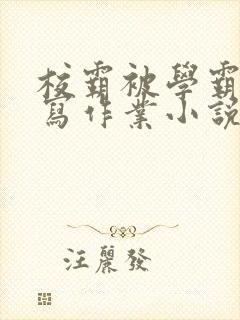 校霸被學霸
寫作業小說
汪麗發